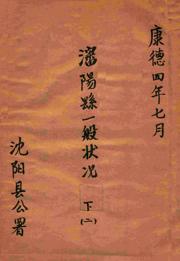 康德四年七月
瀋陽縣一般狀况
下
(二)
沈阳县公署